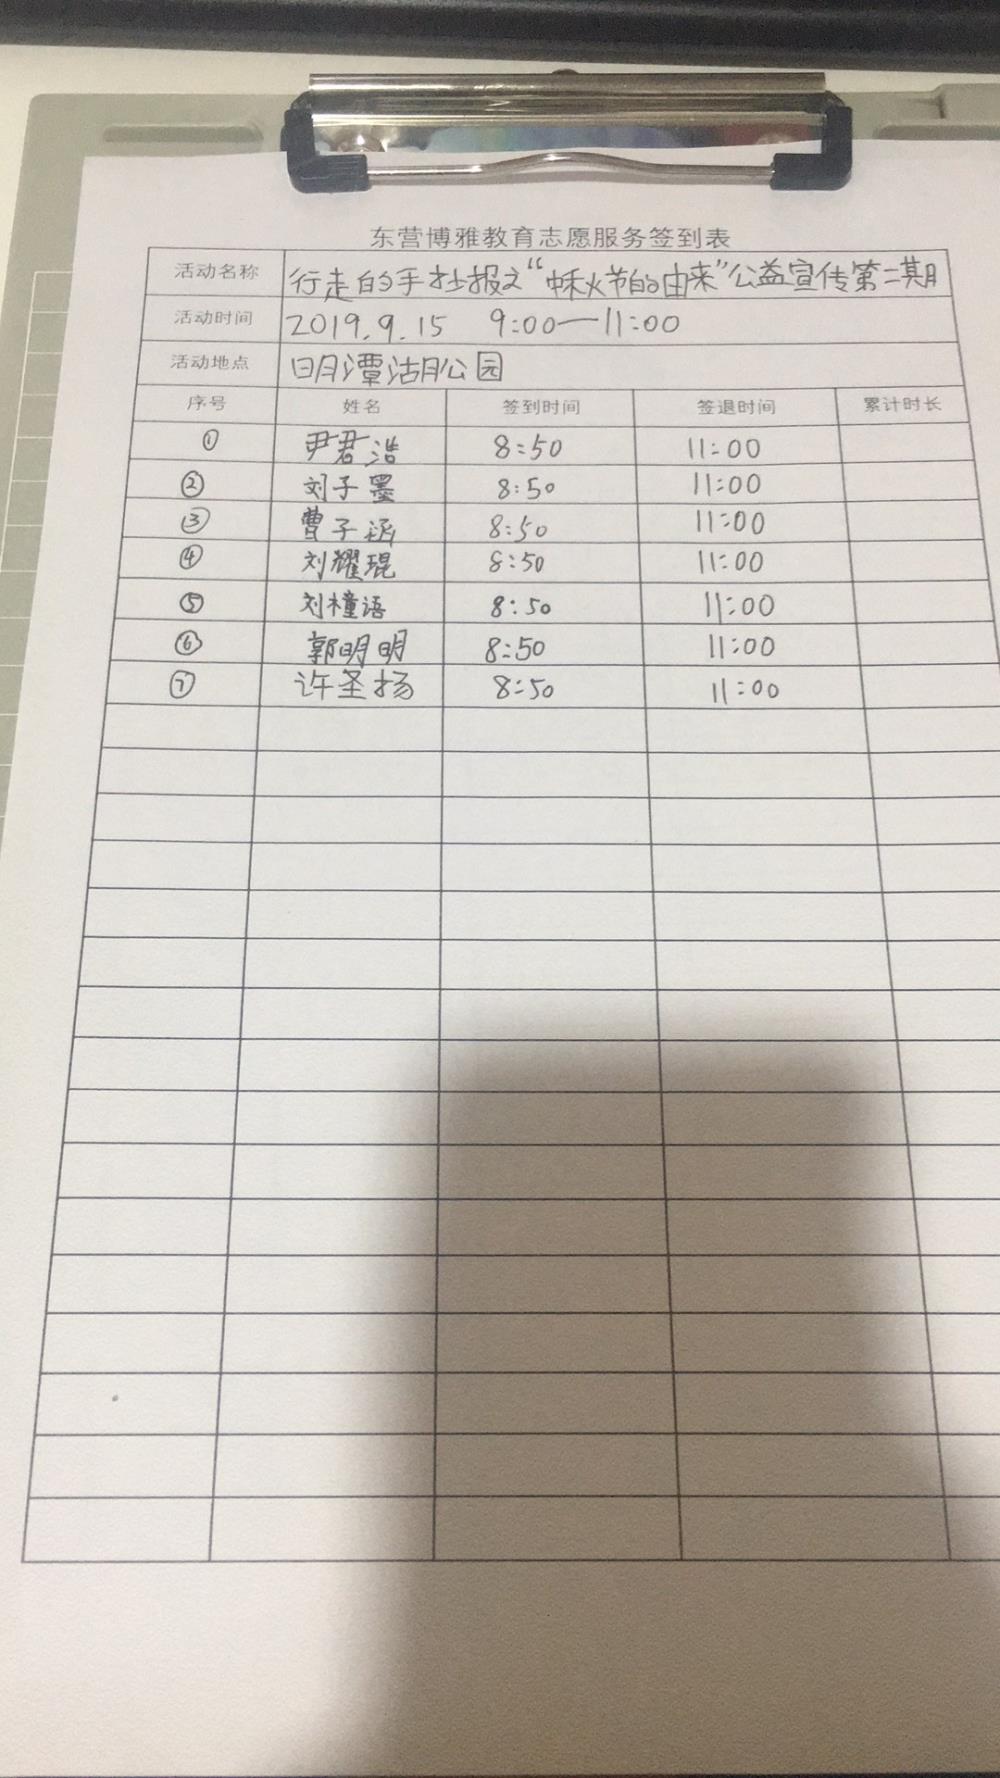 东营博雅教育志愿服务签到表
活动名称 行走的手抄报之“中秋节的由来”公益宣传第二期
活动时间 2019.9.15 9:00—11:00
活动地点 明月潭湖公园
序号 姓名 签到时间 签退时间 累计时长
① 尹君浩 8:50 11:00
② 刘子墨 8:50 11:00
③ 曹子涵 8:50 11:00
④ 刘耀琨 8:50 11:00
⑤ 刘橦语 8:50 11:00
⑥ 郭明明 8:50 11:00
⑦ 许圣扬 8:50 11:00